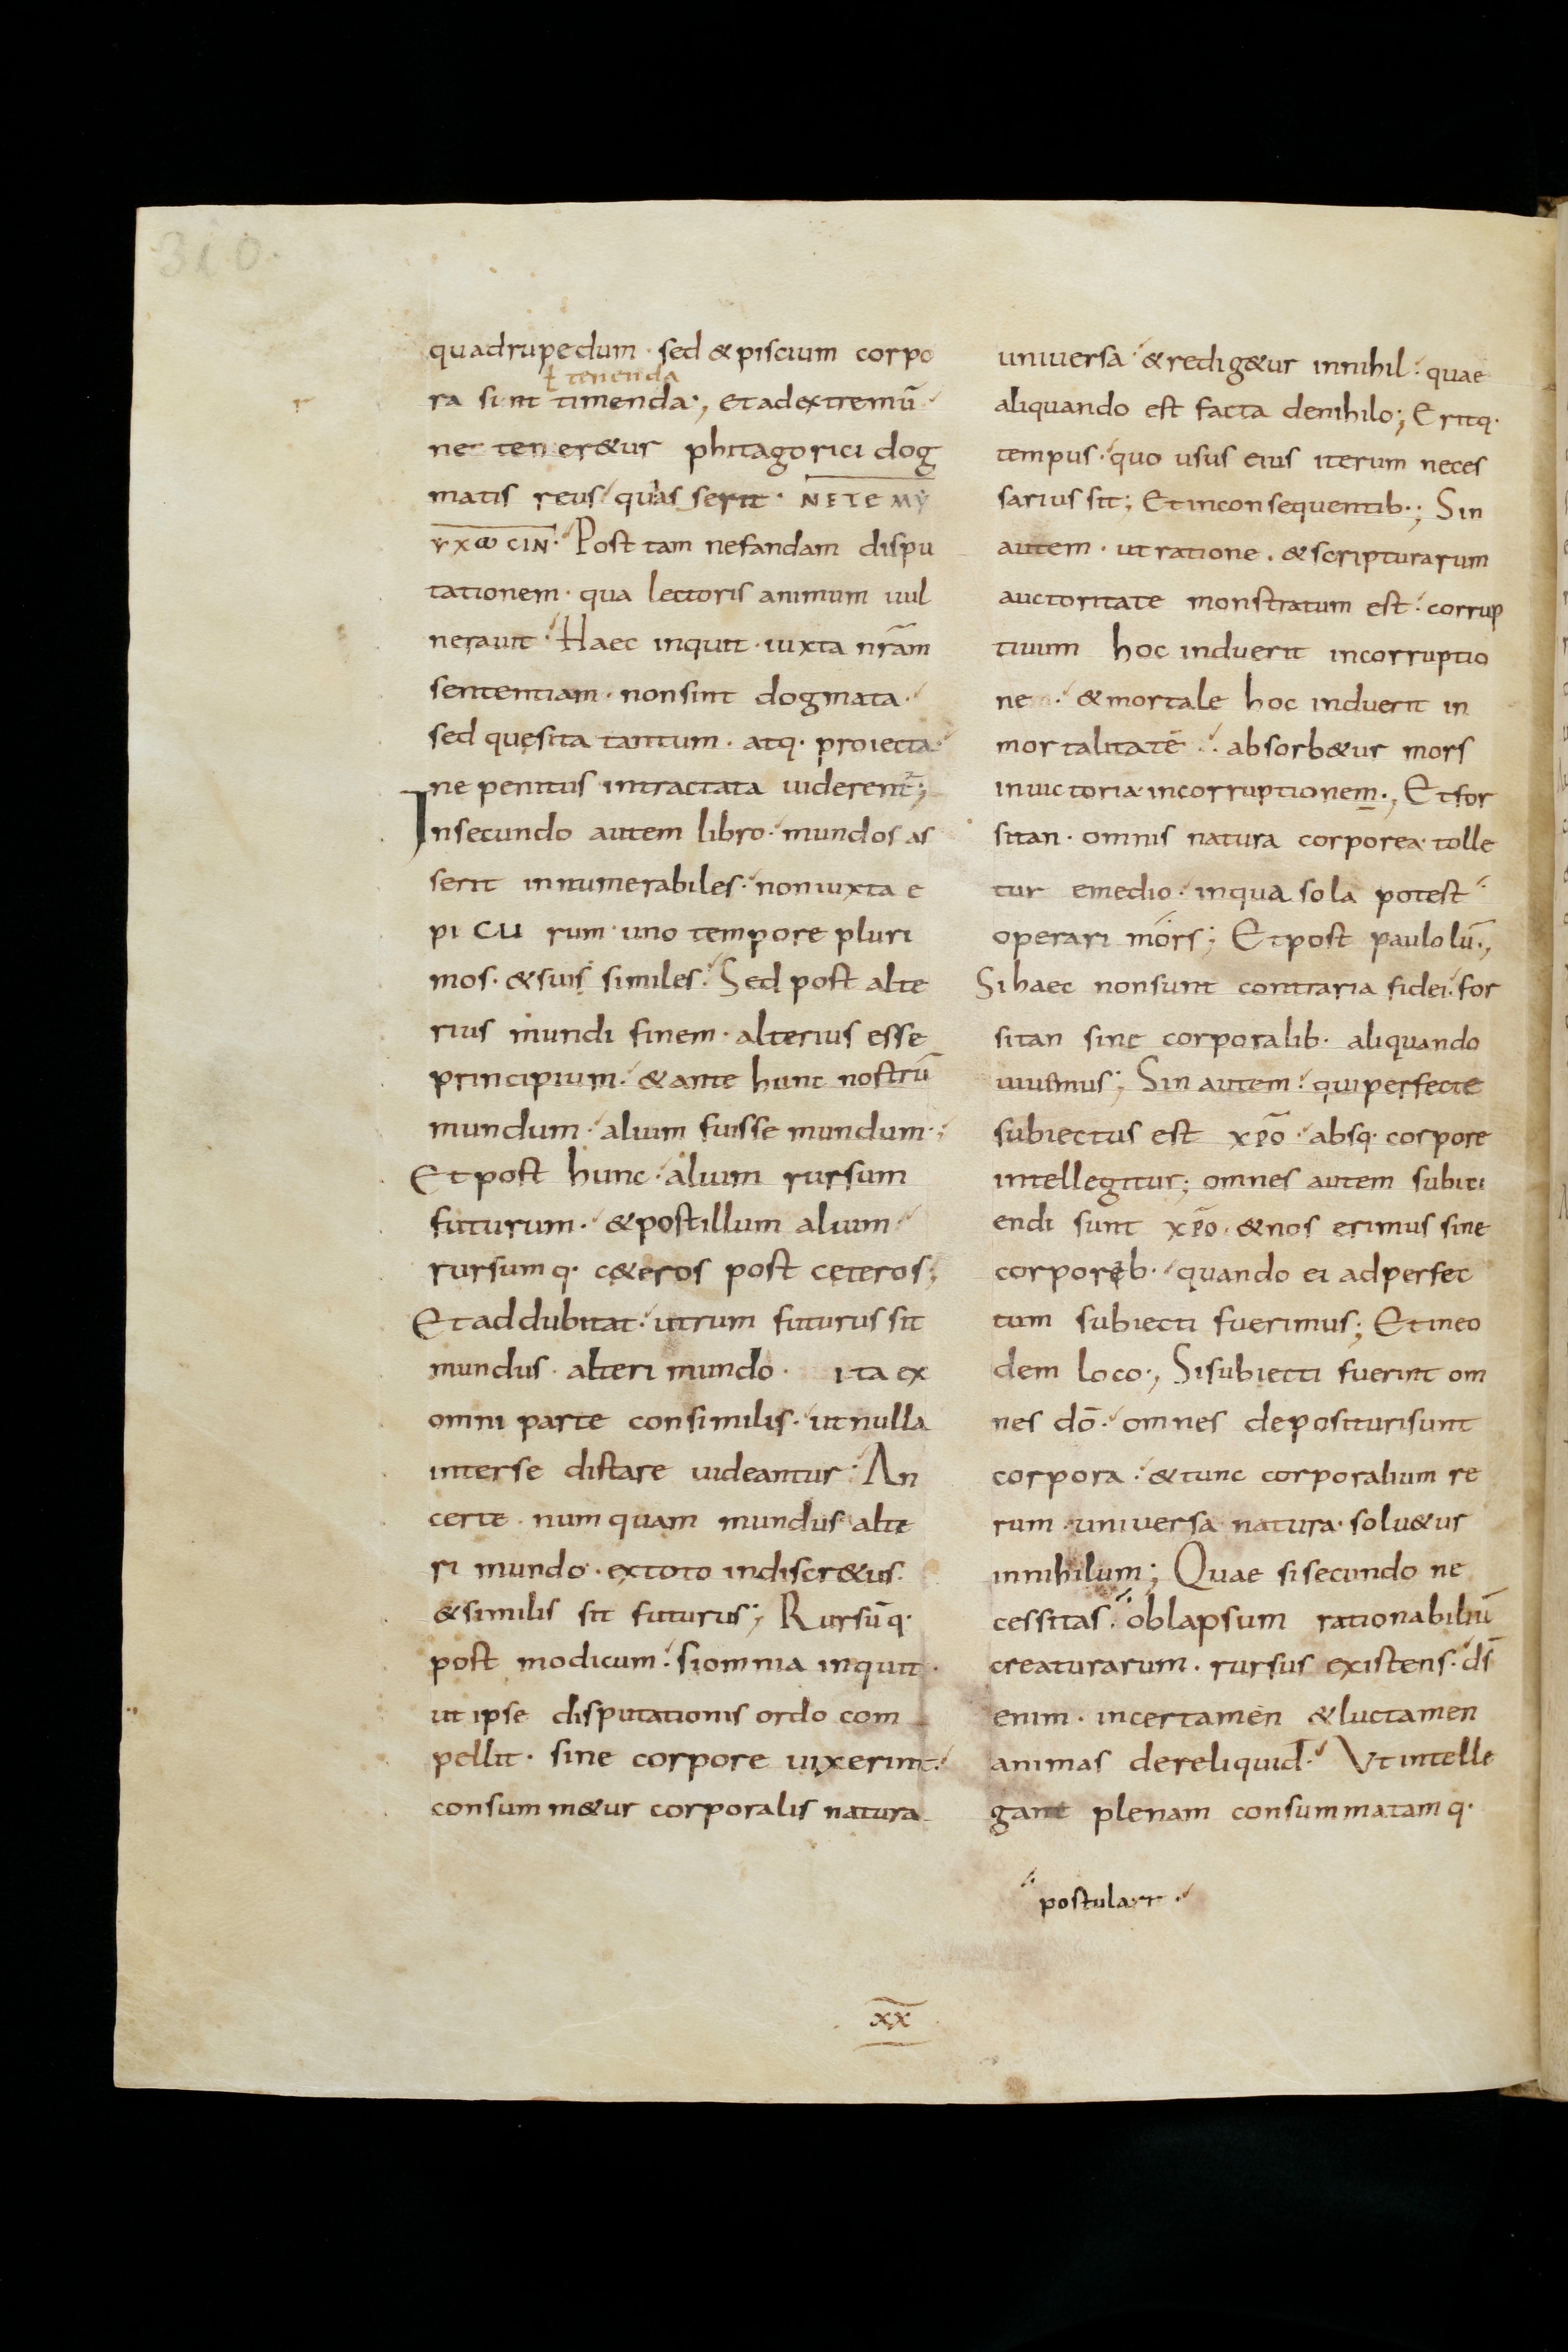 310.
quadrupedum · sed & piscium corpo
ł tenenda
ra sint timenda·, et ad extremū
ne tener&ur phitagorici dog
matis reus quas serit · ΝΕΤΕΜΥ
ΥΧωCIN · Post tam nefandam dispu
tationem · qua lectoris animum uul
nerauit · Haec inquit · iuxta nr̄am
sententiam · non sint dogmata ·
sed quęsita tantum · atq· proiecta ·
ne penitus intractata uiderent̄;
In secundo autem libro · mundos as
serit innumerabiles · non iuxta e
pi cu rum · uno tempore pluri
mos · & suis similes · Sed post alte
rius mundi finem · alterius esse
principium · & ante hunc nostrū
mundum · alium fuisse mundum·;
Et post hunc · alium rursum
futurum · & post illum alium
rursumq· c&eros post ceteros;
Et addubitat · utrum futurus sit
mundus · alteri mundo · ita ex
omni parte consimilis · ut nulla
inter se distare uideantur · An
certe · numquam mundus alte
ri mundo · ex toto indiscr&us ·
& similis sit futurus; Rursūq·
post modicum · si omnia inquit ·
ut ipse disputationis ordo com
pellit · sine corpore uixerint ·
consumm&ur corporalis natura
uniuersa · & redig&ur in nihil · quae
aliquando est facta de nihilo·; Eritq·
tempus · quo usus eius iterum neces
sarius sit; Et in consequentib·; Sin
autem · ut ratione · & scripturarum
auctoritate monstratum est · corrup
tiuum hoc induerit incorruptio
ne · & mortale hoc induerit in
mortalitatē · absorb&ur mors
in uictoria · in corruptionem·, Et for
sitan · omnis natura corporea · tolle
tur e medio · in qua sola potest
operari mors; Et post paululū·,
Si haec non sunt contraria fidei · for
sitan sine corporalib· aliquando
uiuemus; Sin autem · qui perfecte
subiectus est xp̄o · absq· corpore
intellegitur; omnes autem subici
endi sunt xp̄o · & nos erimus sine
corporib· quando ei ad perfec
tum subiecti fuerimus; Et in eo
dem loco·, Si subiecti fuerint om
nes dō · omnes deposituri sunt
corpora · & tunc corporalium re
rum · uniuersa natura · solu&ur
in nihilum; Quae si secundo ne
cessitas · ob lapsum rationabiliū
creaturarum · rursus existens · ds̄
enim · in certamen & luctamen
animas dereliquid · Ut intelle
gant plenam consummatamq·
postularit ·
xx